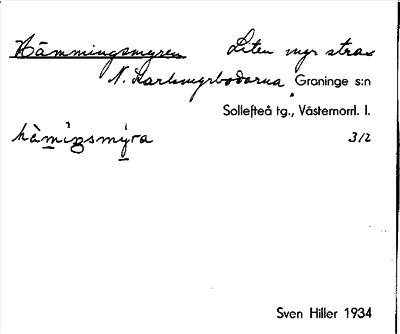 Hämmingsmyren Liten myr strax
N. Karlsmyrbodarna Graninge s:n
Sollefteå tg., Västernorrl. l.
hä̀mìŋsmýra 312
Sven Hiller 1934